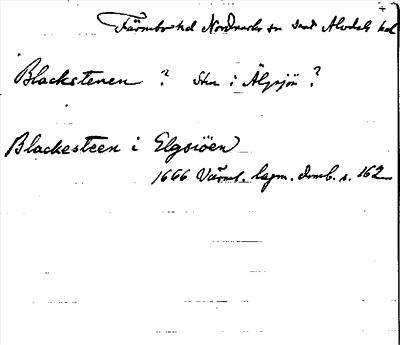 Färnebo hd Nordmark sn samt Älvdals hd
Blackstenen ? Sten i Älgsjön ?
Blackesteen i Elgsiöen
1666 Värml. lagm. domb. s. 162